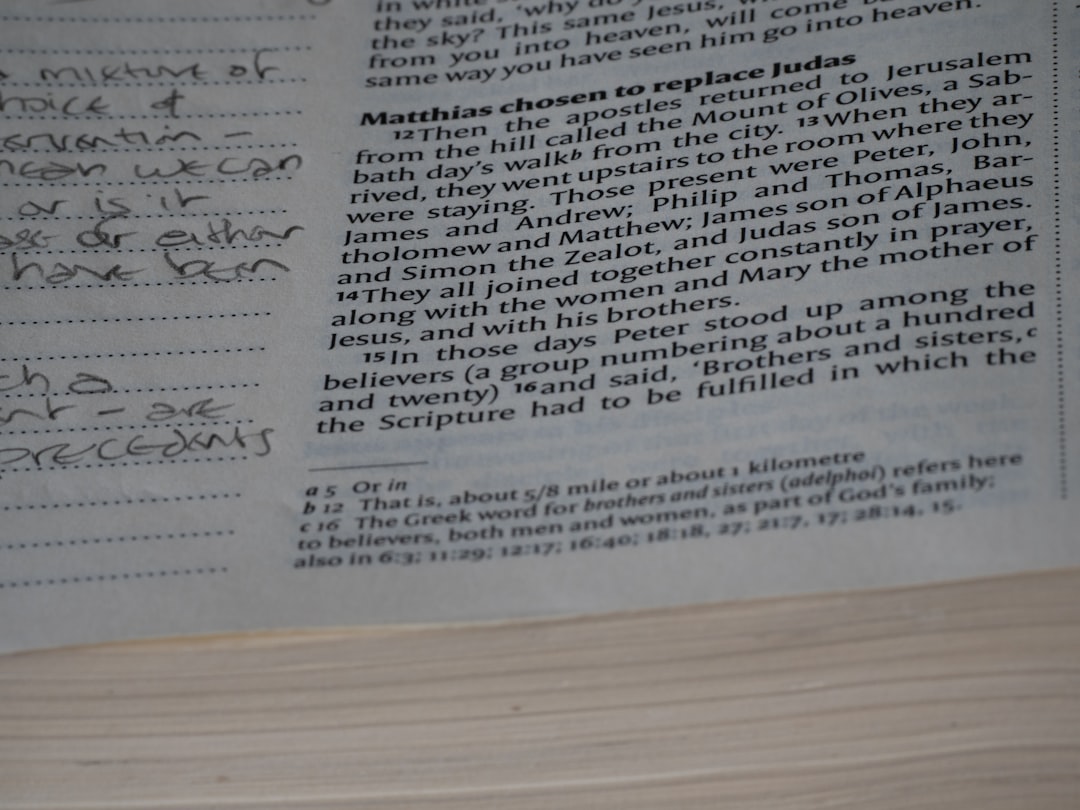 mixture of
hoice of
ervention –
mean we can
or is it
either
have been
ch a
nt – are
precedents
in white
they said, 'why do
the sky? This same Jesus,
from you into heaven, will come
same way you have seen him go into heaven.'
Matthias chosen to replace Judas
12 Then the apostles returned to Jerusalem
from the hill called the Mount of Olives, a Sab-
bath day's walk b from the city. 13 When they ar-
rived, they went upstairs to the room where they
were staying. Those present were Peter, John,
James and Andrew; Philip and Thomas, Bar-
tholomew and Matthew; James son of Alphaeus
and Simon the Zealot, and Judas son of James.
14 They all joined together constantly in prayer,
along with the women and Mary the mother of
Jesus, and with his brothers.
15 In those days Peter stood up among the
believers (a group numbering about a hundred
and twenty) 16 and said, 'Brothers and sisters, c
the Scripture had to be fulfilled in which the
a 5 Or in
b 12 That is, about 5/8 mile or about 1 kilometre
c 16 The Greek word for brothers and sisters (adelphoi) refers here
to believers, both men and women, as part of God's family;
also in 6:3; 11:29; 12:17; 16:40; 18:18, 27; 21:7, 17; 28:14, 15.